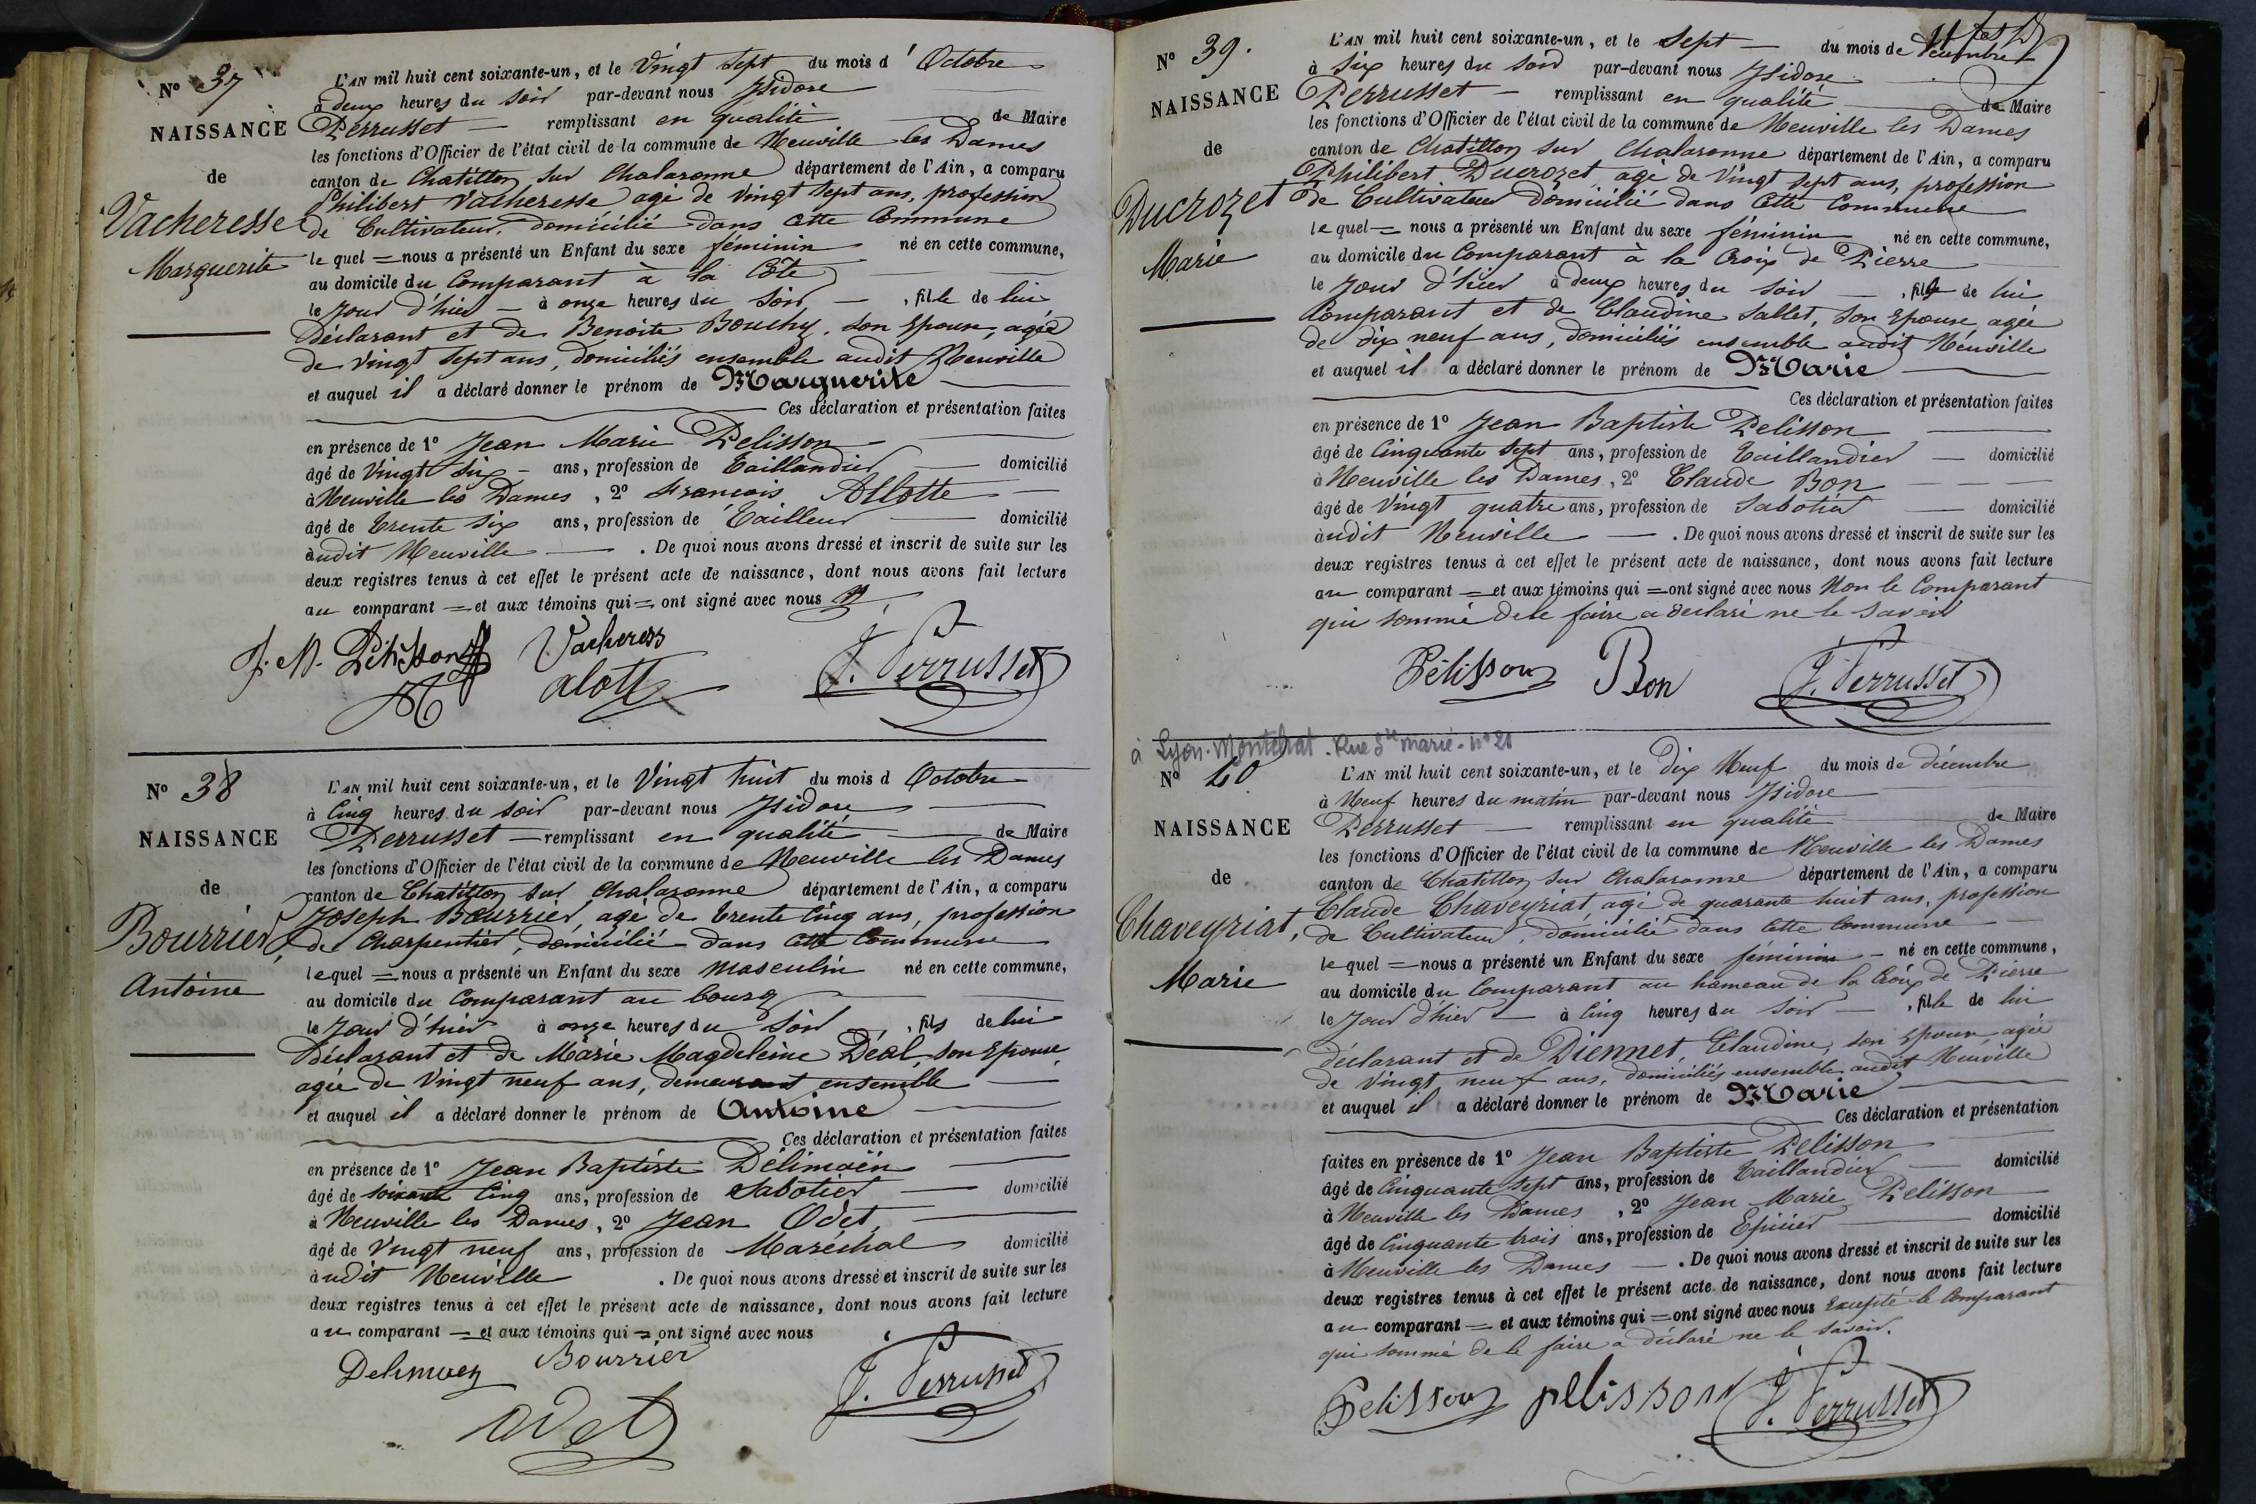 N° 37
NAISSANCE
de
Vacheresse
Marguerite
L'AN mil huit cent soixante-un, et le Vingt sept du mois d' Octobre
à deux heures du soir par-devant nous Isidore
Perrusset remplissant en qualité de Maire
les fonctions d'Officier de l'état civil de la commune de Neuville les Dames
canton de Chatillon sur Chalaronne département de l'Ain, a comparu
Philibert Vacheresse agé de vingt sept ans, profession
de Cultivateur, domicilié dans cette Commune
le quel = nous a présenté un Enfant du sexe féminin né en cette commune,
au domicile du Comparant à la Côte
le jour d'hier à onze heures du soir, fille de lui
Déclarant et de Benoite Bouchy, son Epouse, agée
de vingt sept ans, domiciliés ensemble audit Neuville
et auquel il a déclaré donner le prénom de Marguerite
Ces déclaration et présentation faites
en présence de 1° Jean Marie Pelisson
âgé de Vingt six ans, profession de Taillandier domicilié
à Neuville les Dames, 2° François Allotte
âgé de trente six ans, profession de Tailleur domicilié
audit Neuville. De quoi nous avons dressé et inscrit de suite sur les
deux registres tenus à cet effet le présent acte de naissance, dont nous avons fait lecture
au comparant = et aux témoins qui = ont signé avec nous
J. M. Pelisson Vacheress
alott J. Perrusset
N° 38
NAISSANCE
de
Bourrier,
Antoine
L'AN mil huit cent soixante-un, et le Vingt huit du mois d Octobre
à Cinq heures du soir par-devant nous Isidore
Perrusset remplissant en qualité de Maire
les fonctions d'Officier de l'état civil de la commune de Neuville les Dames
canton de Chatillon sur Chalaronne département de l'Ain, a comparu
Joseph Bourrier, agé de trente cinq ans, profession
de Charpentier, domicilié dans cette Commune
lequel = nous a présenté un Enfant du sexe masculin né en cette commune,
au domicile du Comparant au bourg
le jour d'hier à onze heures du soir, fils de lui
Déclarant et de Marie Magdeleine Déal, son Epouse,
agée de vingt neuf ans, demeurant ensemble
et auquel il a déclaré donner le prénom de Antoine
Ces déclaration et présentation faites
en présence de 1° Jean Baptiste Délimoën
âgé de soixante cinq ans, profession de Sabotier domicilié
à Neuville les Dames, 2° Jean Odet,
âgé de Vingt neuf ans, profession de Maréchal domicilié
audit Neuville. De quoi nous avons dressé et inscrit de suite sur les
deux registres tenus à cet effet le présent acte de naissance, dont nous avons fait lecture
au comparant = et aux témoins qui = ont signé avec nous
Delimoen Bourrier
odet J. Perrusset
N° 39.
NAISSANCE
de
Ducrozet
Marie
L'AN mil huit cent soixante-un, et le Sept du mois de Décembre
à Six heures du soir par-devant nous Isidore
Perrusset remplissant en qualité de Maire
les fonctions d'Officier de l'état civil de la commune de Neuville les Dames
canton de Chatillon sur Chalaronne département de l'Ain, a comparu
Philibert Ducrozet agé de Vingt sept ans, profession
de Cultivateur domicilié dans cette Commune
le quel = nous a présenté un Enfant du sexe féminin né en cette commune,
au domicile du Comparant à la Croix de Pierre
le jour d'hier à deux heures du soir, fille de lui
Comparant et de Claudine Sallet, son Epouse, agée
de dix neuf ans, domiciliés ensemble audit Neuville
et auquel il a déclaré donner le prénom de Marie
Ces déclaration et présentation faites
en présence de 1° Jean Baptiste Pelisson
âgé de Cinquante sept ans, profession de Taillandier domicilié
à Neuville les Dames, 2° Claude Bon
âgé de Vingt quatre ans, profession de Sabotier domicilié
audit Neuville. De quoi nous avons dressé et inscrit de suite sur les
deux registres tenus à cet effet le présent acte de naissance, dont nous avons fait lecture
au comparant = et aux témoins qui = ont signé avec nous Non le Comparant
qui sommé de le faire a declaré ne le savoir
Pélisson Bon J. Perrusset
à Lyon-Montchat. Rue Ste marie. n° 21
N° 40
NAISSANCE
de
Chaveyriat,
Marie
L'AN mil huit cent soixante-un, et le Dix Neuf du mois de décembre
à Neuf heures du matin par-devant nous Isidore
Perrusset remplissant en qualité de Maire
les fonctions d'Officier de l'état civil de la commune de Neuville les Dames
canton de Chatillon sur Chalaronne département de l'Ain, a comparu
Claude Chaveyriat agé de quarante huit ans, profession
de Cultivateur, domicilié dans cette Commune
le quel = nous a présenté un Enfant du sexe féminin né en cette commune,
au domicile du Comparant au hameau de la Croix de Pierre
le jour d'hier à Cinq heures du soir, fille de lui
déclarant et de Diennet, Claudine, son Epouse agée
de vingt neuf ans, domiciliés ensemble audit Neuville
et auquel il a déclaré donner le prénom de Marie
Ces déclaration et présentation
faites en présence de 1° Jean Baptiste Pelisson
âgé de Cinquante sept ans, profession de Taillandier domicilié
à Neuville les Dames, 2° Jean Marie Pelisson
âgé de Cinquante trois ans, profession de Epicier domicilié
à Neuville les Dames. De quoi nous avons dressé et inscrit de suite sur les
deux registres tenus à cet effet le présent acte de naissance, dont nous avons fait lecture
au comparant = et aux témoins qui = ont signé avec nous Excepté le Comparant
qui sommé de le faire a déclaré ne le savoir.
Pelisson pelisson J. Perrusset